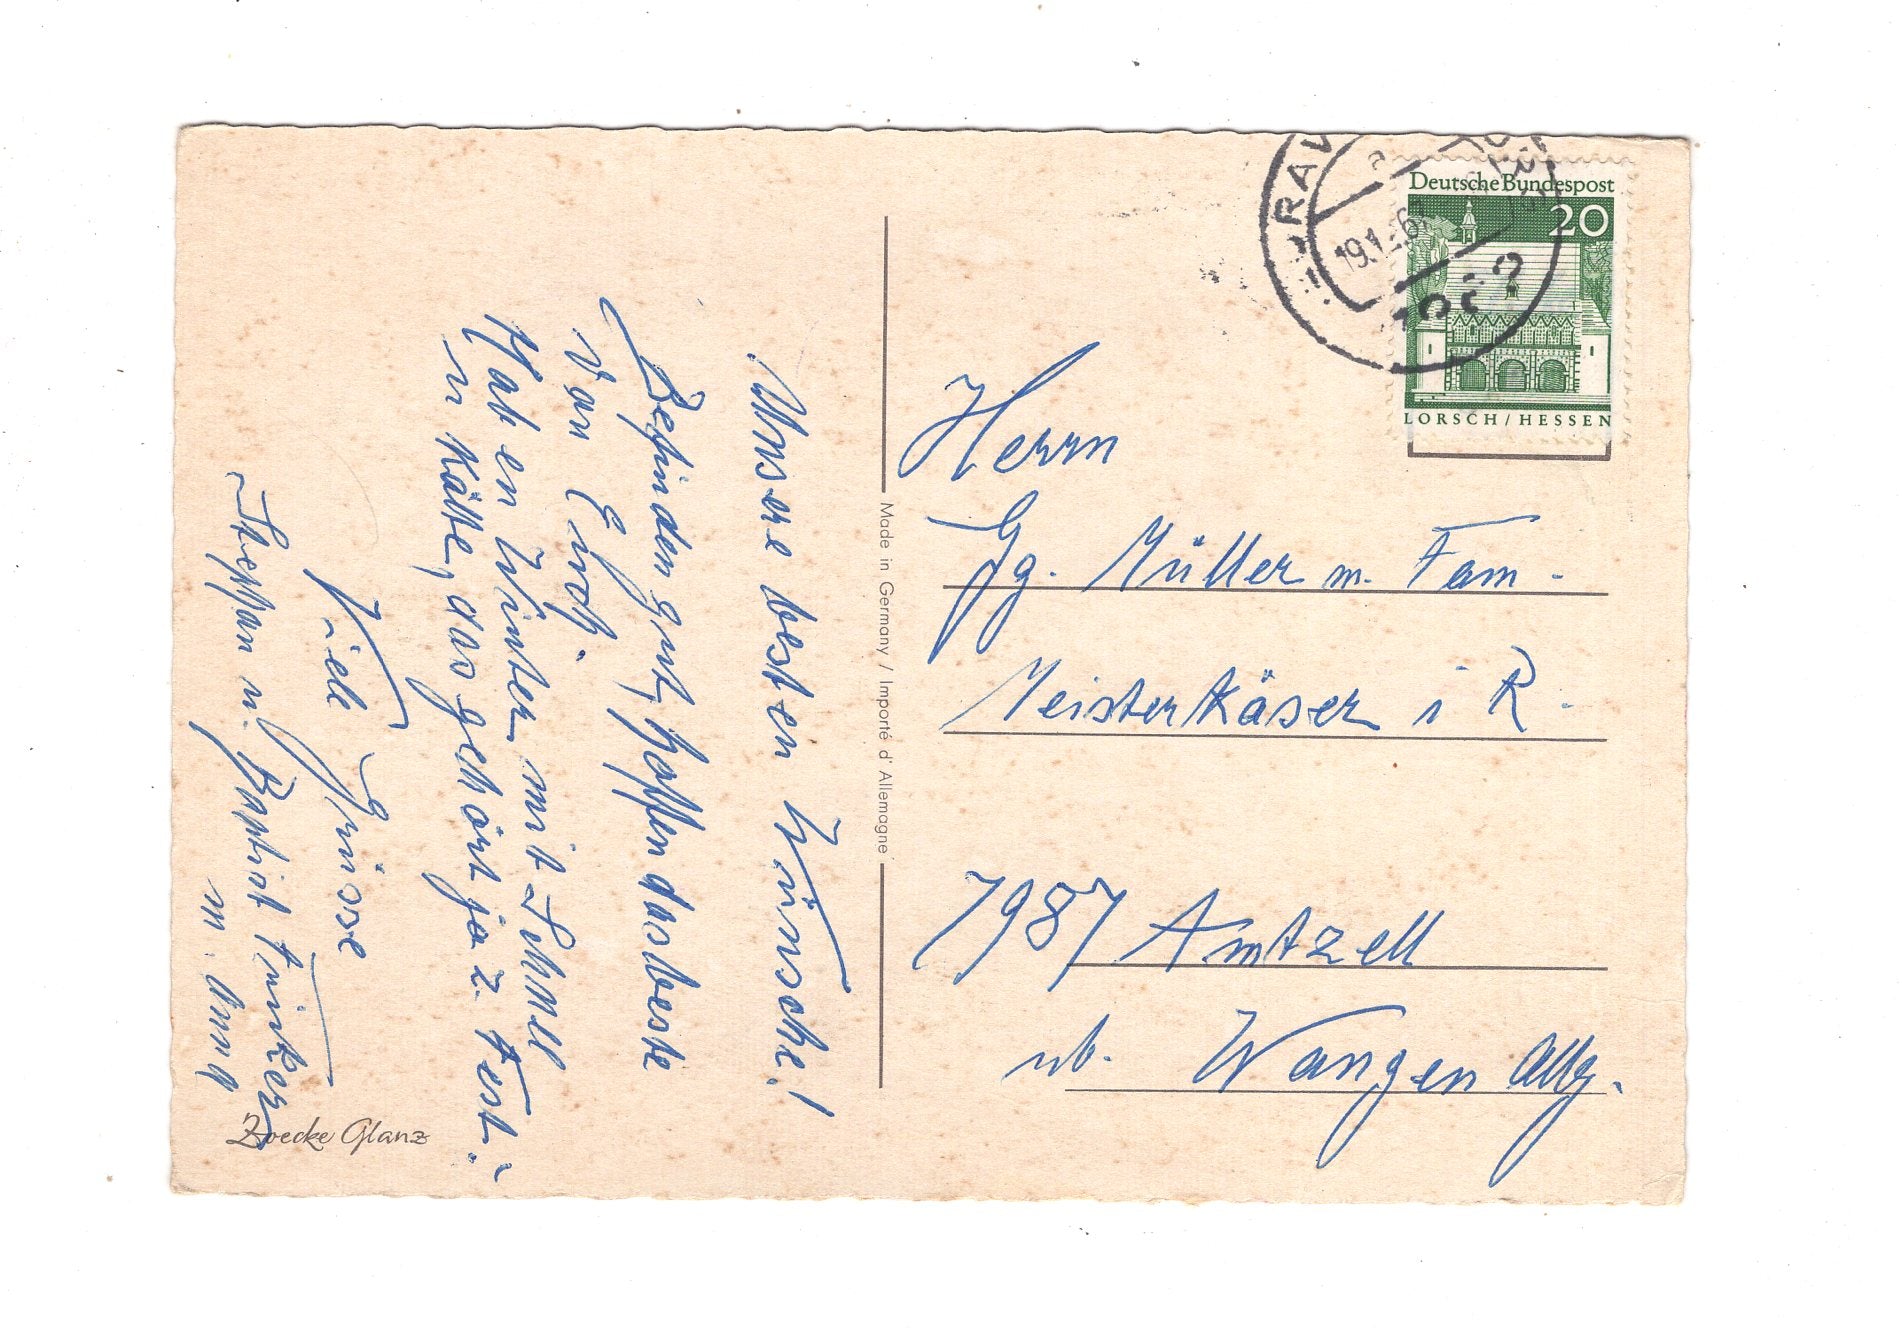 Unsere besten Wünsche!
Befinden gut, hoffen dasbeste
von Euch.
Haben Winter mit Schnee
u Kälte, das gehört ja z. Fest.
Viele Grüsse
Stephan u. Baptist Trinkerr
m. Anna
Zoecke Glanz
Made in Germany / Importé d' Allemagne
RAV
19.1
Deutsche Bundespost
20
LORSCH/HESSEN
Herrn
Gg. Müller m. Fam.
Meisterkäser i R.
7987 Amtzell
nb. Wangen Allg.